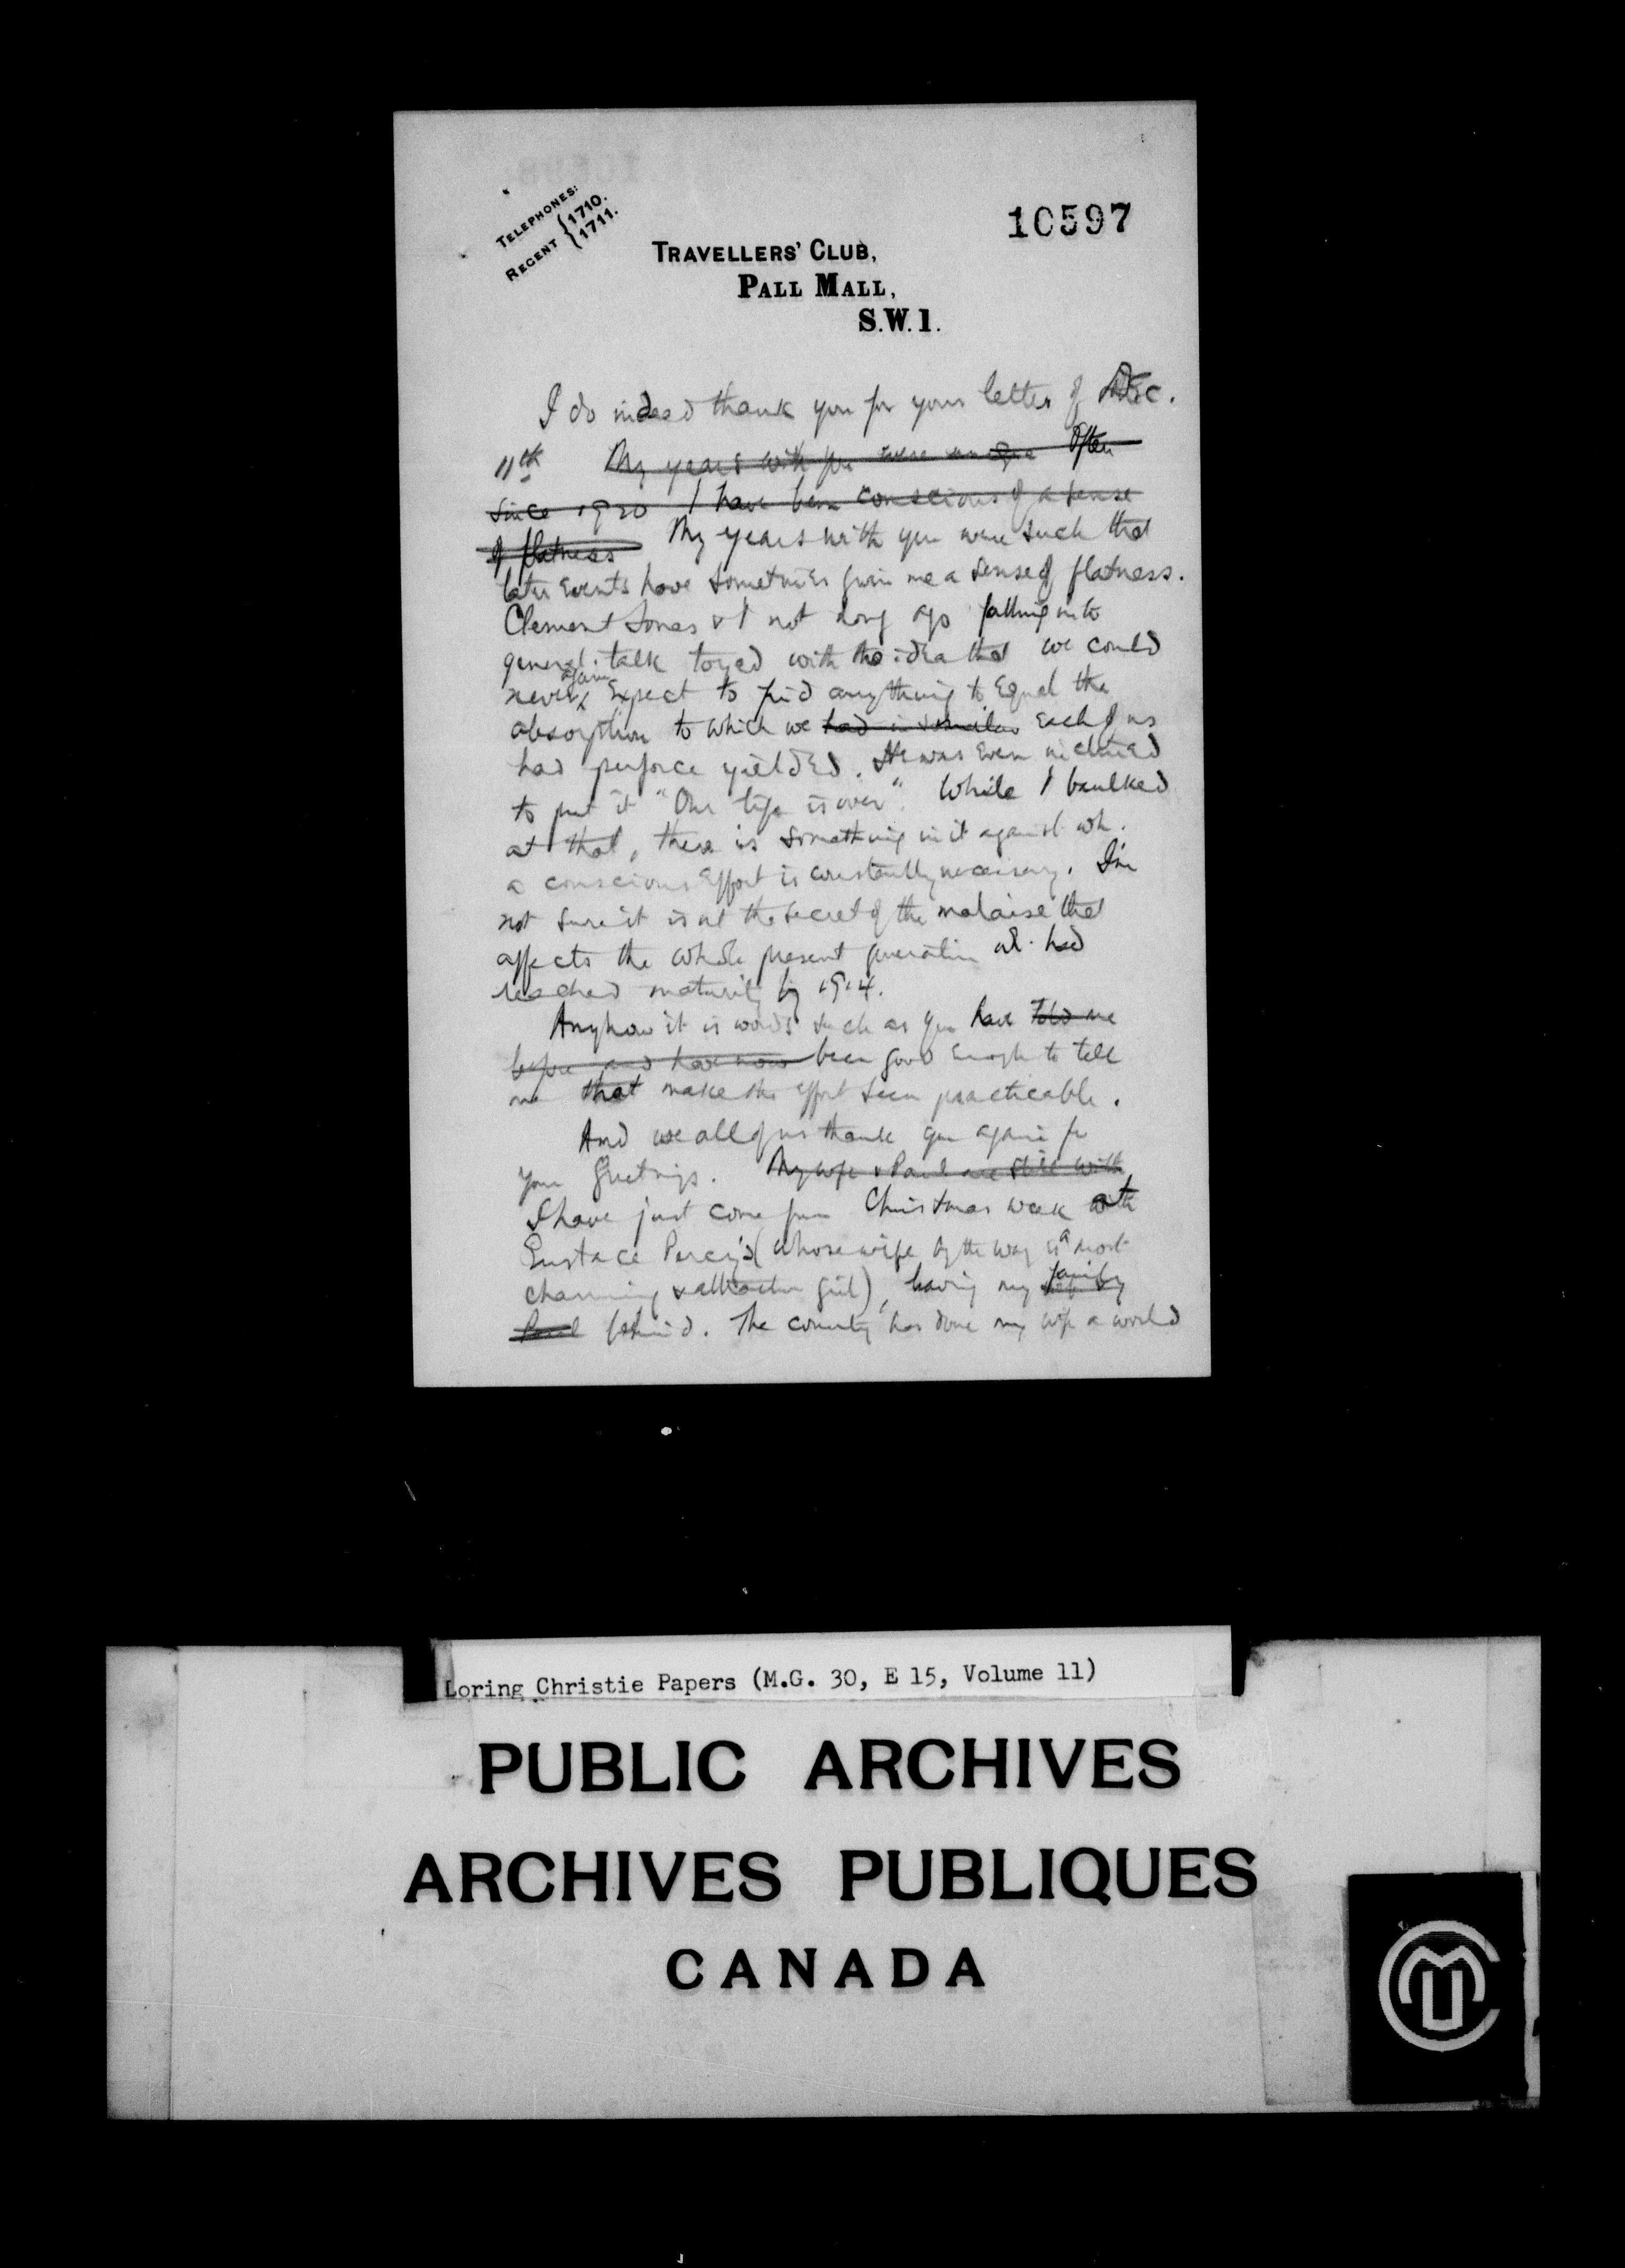 TELEPHONES:
REGENT {1710.
{1711.
10597
TRAVELLERS' CLUB,
PALL MALL,
S.W.1.
I do indeed thank you for your letter of Dec.
11th My years with you were unique Often
since 1920 I have been conscious of a sense
of flatness My years with you were such that
later events have sometimes given me a sense of flatness.
Clement Jones & I not long ago falling into
general talk toyed with the idea that we could
never again expect to find anything to equal the
absorption to which we had in similar each of us
had perforce yielded. He was even inclined
to put it "Our life is over". While I baulked
at that, there is something in it against wh.
a conscious effort is constantly necessary. I'm
not sure it is not the secret of the malaise that
affects the whole present generation wh. had
reached maturity by 1914.
Anyhow it is words such as you have told me
before and have now been good enough to tell
me that make the effort seem practicable.
And we all of us thank you again for
your greetings. My wife & Paul are still with
I have just come from Christmas week with
Eustace Percy's (whose wife by the way is a most
charming & attractive girl), leaving my family
Paul behind. The country has done my wife a world
Loring Christie Papers (M.G. 30, E 15, Volume 11)
PUBLIC ARCHIVES
ARCHIVES PUBLIQUES
CANADA